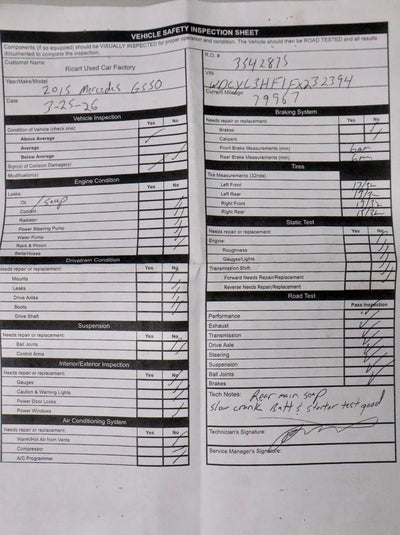 VEHICLE SAFETY INSPECTION SHEET
Components (if so equipped) should be VISUALLY INSPECTED for proper operation and condition. The Vehicle should then be ROAD TESTED and all results
documented to complete the inspection.
Customer
Ricart Used Car Factory
Year/Make/Model
2015 Mercedes G550
Date
3-25-26
Vehicle Inspection
Condition of Vehicle (check one) Yes No
Above Average
Average
Below Average
Sign(s) of Collision Damage(s)
Modification(s)
Engine Condition
Leaks: Yes No
Oil / seep
Coolant
Radiator
Power Steering Pump
Water Pump
Rack & Pinion
Belts/Hoses
Drivetrain Condition
Needs repair or replacement: Yes No
Mounts
Leaks
Drive Axles
Boots
Drive Shaft
Suspension
Needs repair or replacement: Yes No
Ball Joints
Control Arms
Interior/Exterior Inspection
Needs repair or replacement: Yes No
Gauges
Caution & Warning Lights
Power Door Locks
Power Windows
Air Conditioning System
Needs repair or replacement: Yes No
Warm/Hot Air from Vents
Compressor
A/C Programmer
R.O. #
3542875
VIN
WDCYC3HF1FX232394
Current Mileage
79967
Braking System
Needs repair or replacement: Yes No
Brakes
Calipers
Front Brake Measurements (mm) 6mm
Rear Brake Measurements (mm) 6mm
Tires
Tire Measurements (32nds)
Left Front
Left Rear
Right Front
Right Rear
Static Test
Needs repair or replacement: Yes No
Engine:
Roughness
Gauges/Lights
Transmission Shift:
Forward Needs Repair/Replacement
Reverse Needs Repair/Replacement
Road Test
Pass Inspection
Performance
Exhaust
Transmission
Drive Axle
Steering
Suspension
Ball Joints
Brakes
Tech Notes: Rear main seep
slow crank Batt & starter test good
Technician's Signature:
Service Manager's Signature: